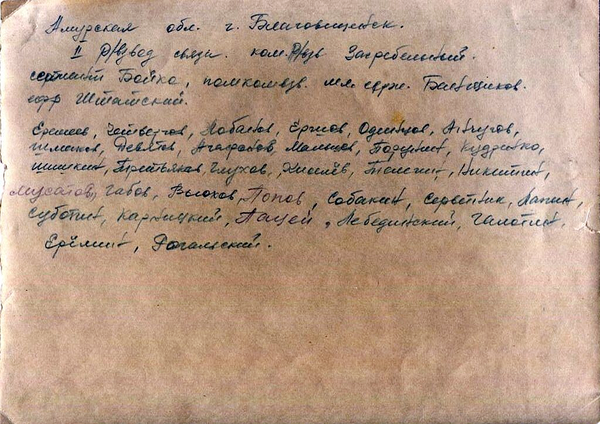 Амурская обл. г. Благовещенск.
II р/взвод связи. ком. р/взв Загребельный.
сержант Бойко, помкомвзв. мл. серж. Банщиков.
ефр Штатский.
Ерёмов, Четвертов, Лобанов, Ершов, Одинцов,
Шмаков, Девятов, Атарадов, Малышов, Порунин, Кудренко,
Шишкин, Третьяков, Глухов, Киселёв, Телегин, Никитин,
Мусатов, Габов, Вылохов, Попов, Собакин, Серветник, Лапин,
Суботин, Карницкий, Пацей, Лебединский, Чалоткин,
Ерёмин, Рогальский.